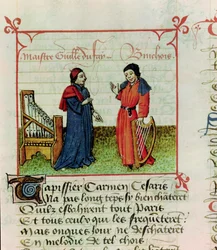 Maistre Guille du fay Binchois
Tapissier Carmen Cesaris
Na pas long teps sy bien chāterēt
Quilz esbahirent tout Paris
Et tous ceulx qui les frequēterēt
Mais onques Jour ne deschāterēt
En melodie de tel chois